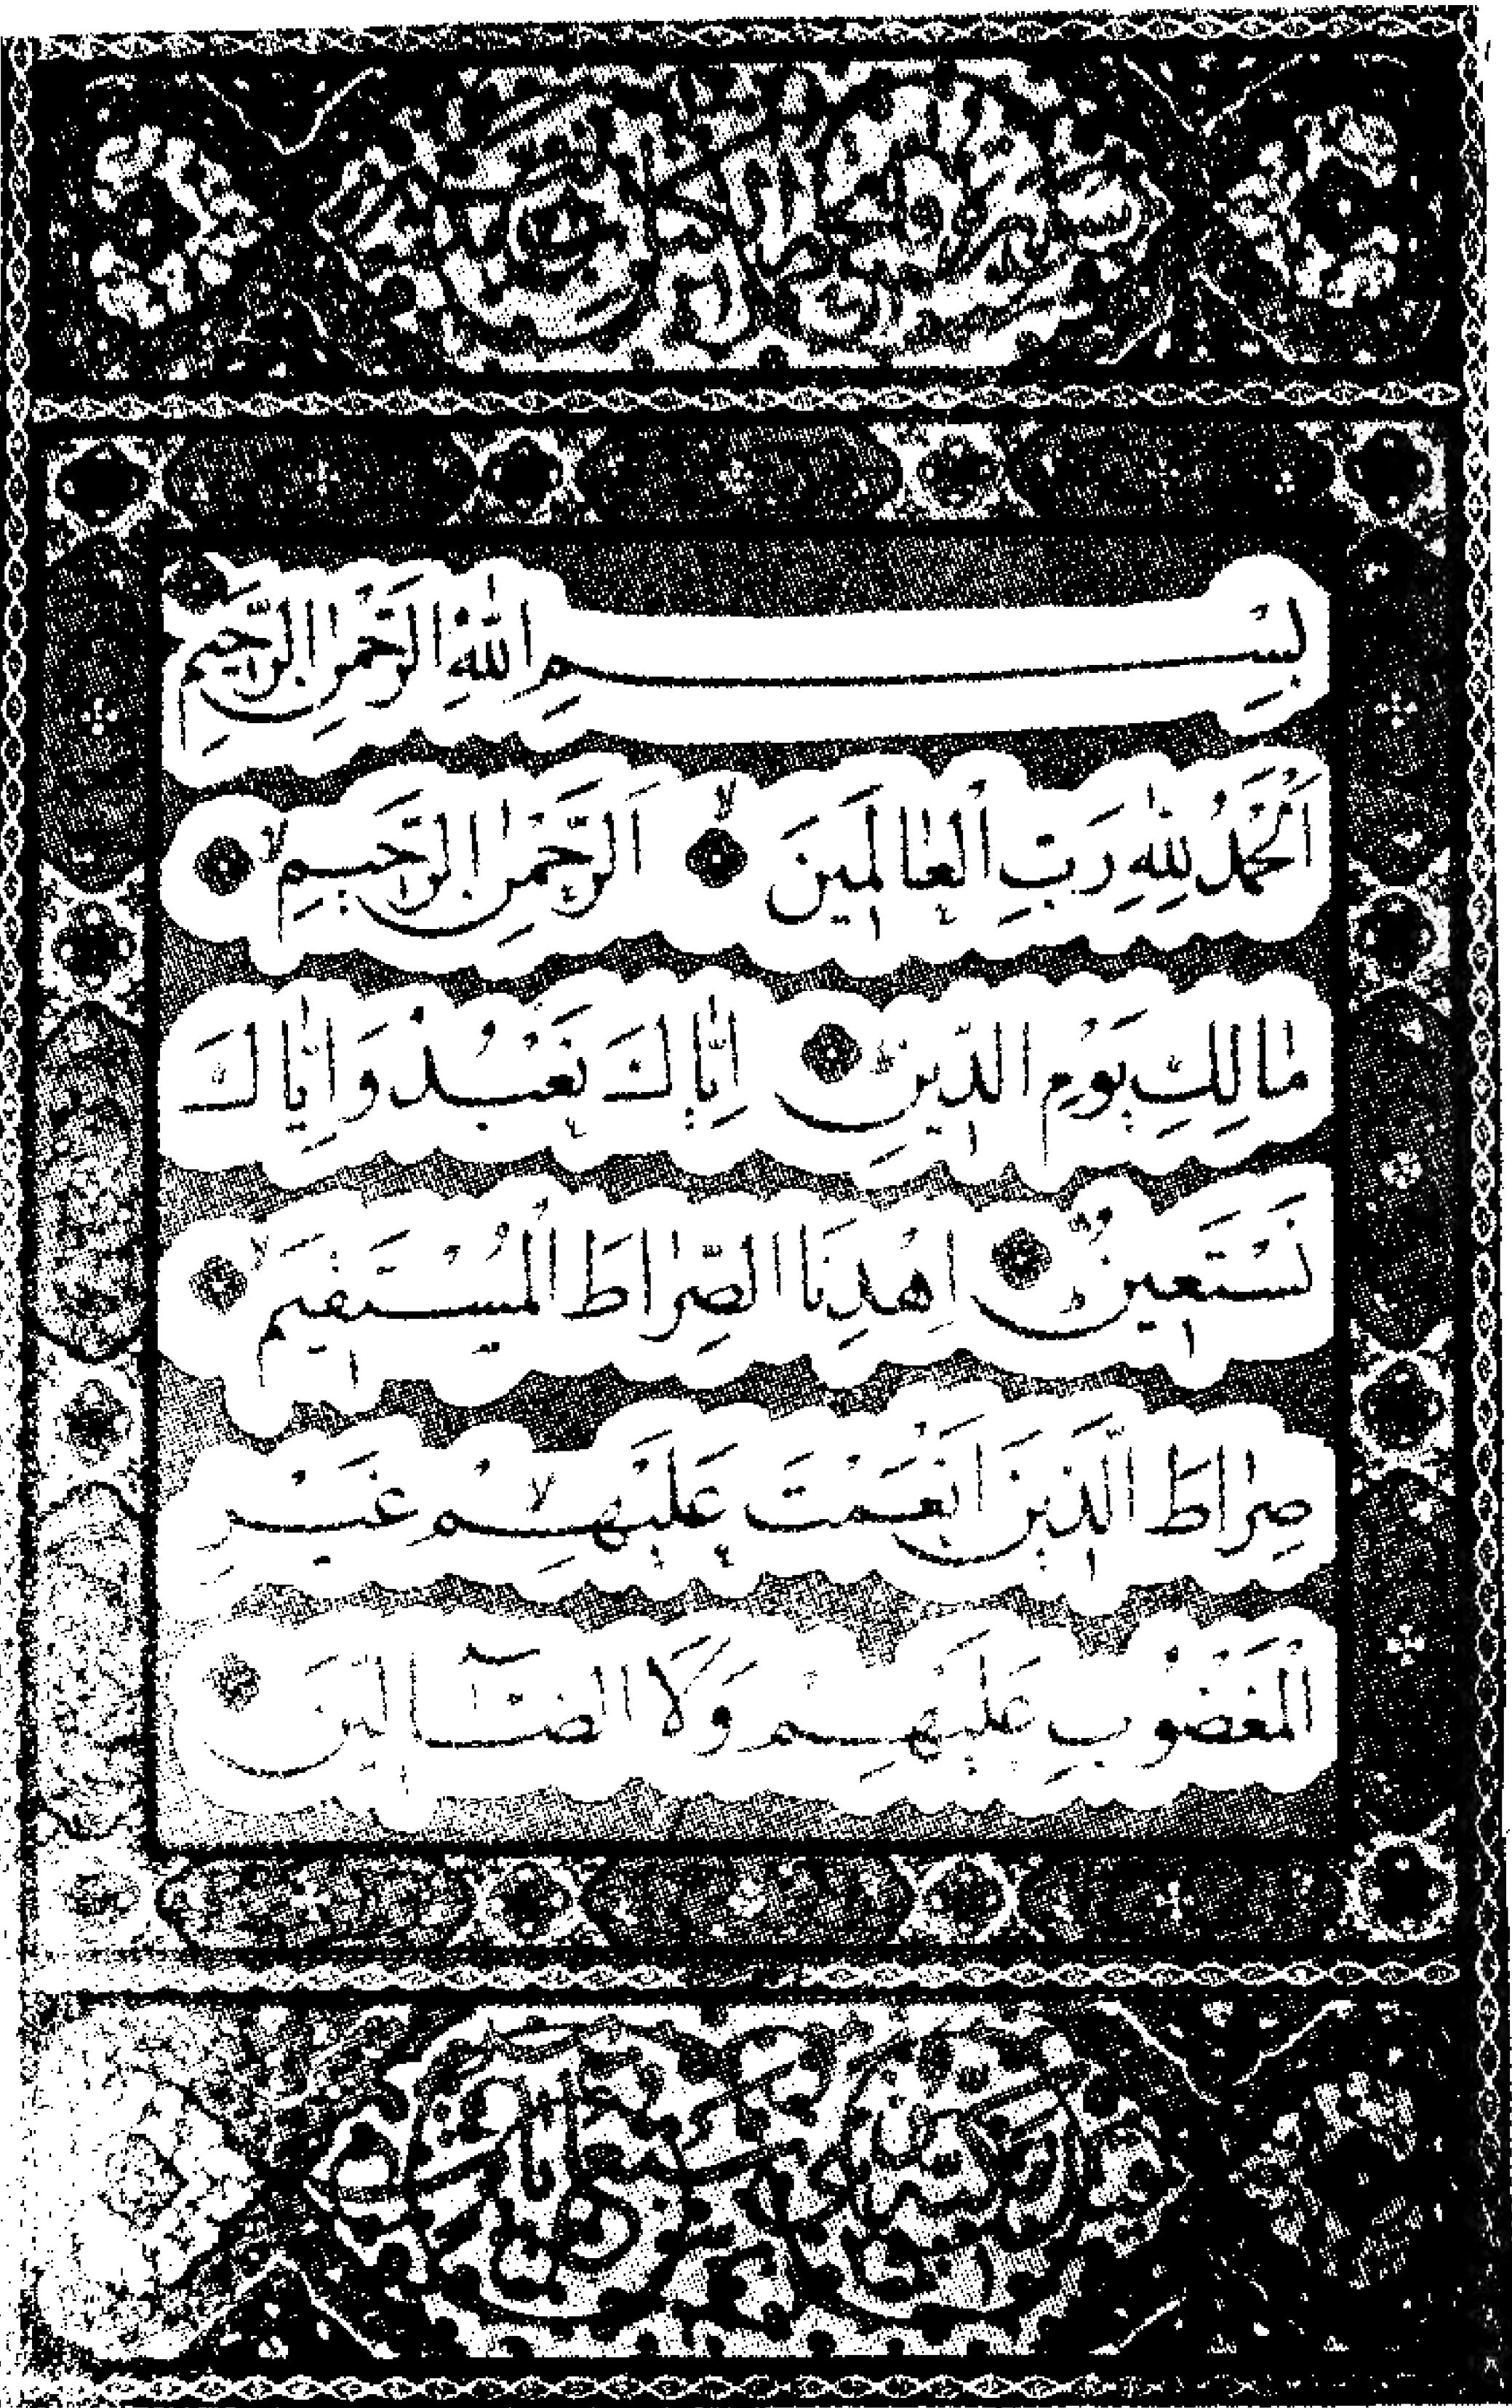 بِسْمِ اللّٰهِ الرَّحْمٰنِ الرَّحِيمِ
اَلْحَمْدُ لِلّٰهِ رَبِّ الْعٰالَمِينَ ۙ اَلرَّحْمٰنِ الرَّحِيمِ ۙ
مٰالِكِ يَوْمِ الدِّينِ ۗ اِيّٰاكَ نَعْبُدُ وَاِيّٰاكَ
نَسْتَعِينُ ۗ اِهْدِنَا الصِّرٰاطَ الْمُسْتَقِيمَ ۙ
صِرٰاطَ الَّذِينَ اَنْعَمْتَ عَلَيْهِمْ ۙ غَيْرِ
الْمَغْضُوبِ عَلَيْهِمْ وَلَا الضَّآلِّينَ